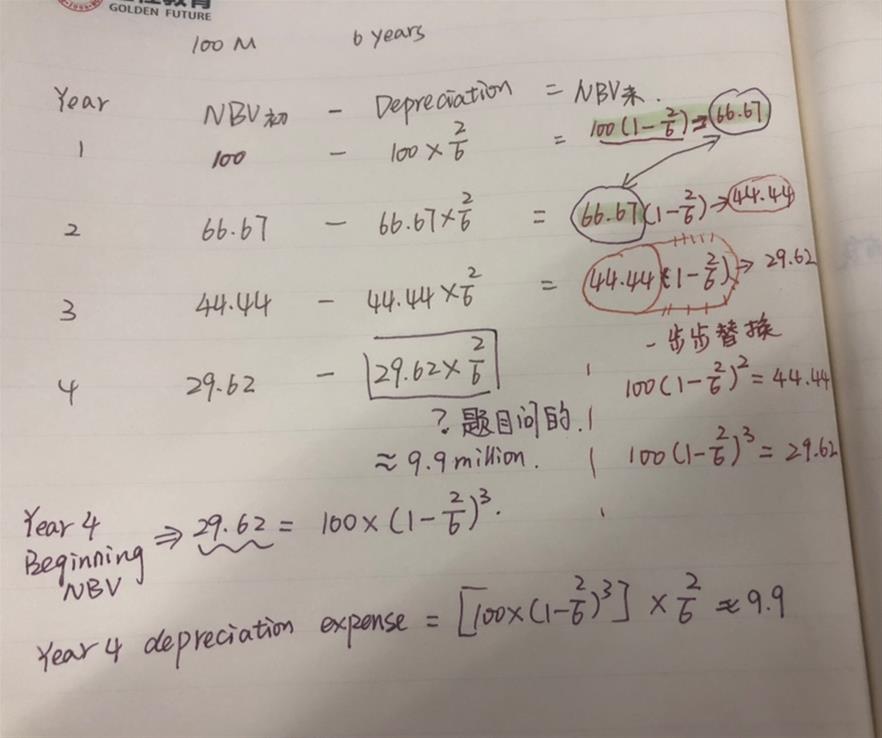 GOLDEN FUTURE
100 M 6 years
Year NBV初 - Depreciation = NBV末.
1 100 - 100 × 2/6 = 100(1-2/6) ⇒ 66.67
2 66.67 - 66.67×2/6 = 66.67(1-2/6) → 44.44
3 44.44 - 44.44×2/6 = 44.44(1-2/6) → 29.62
一步步替换
4 29.62 - 29.62×2/6
100(1-2/6)^2 = 44.44
? 题目问的.
≈ 9.9 million.
100(1-2/6)^3 = 29.62
Year 4 Beginning NBV ⇒ 29.62 = 100×(1-2/6)^3.
Year 4 depreciation expense = [100×(1-2/6)^3] × 2/6 ≈ 9.9